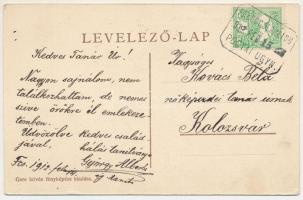 LEVELEZŐ-LAP
Kedves Tanár Úr!
Nagyon sajnálom, nem
találkozhattam, de nemes
szíve örökre él emlékeze-
temben.
Üdvözölve kedves család-
jával.
hálás tanítványa
György Albert
Fcs. 1912.
Nagyságos
Kovács Béla
nőképezdei tanár úrnak
Kolozsvár
Gere István fényképész kiadása.